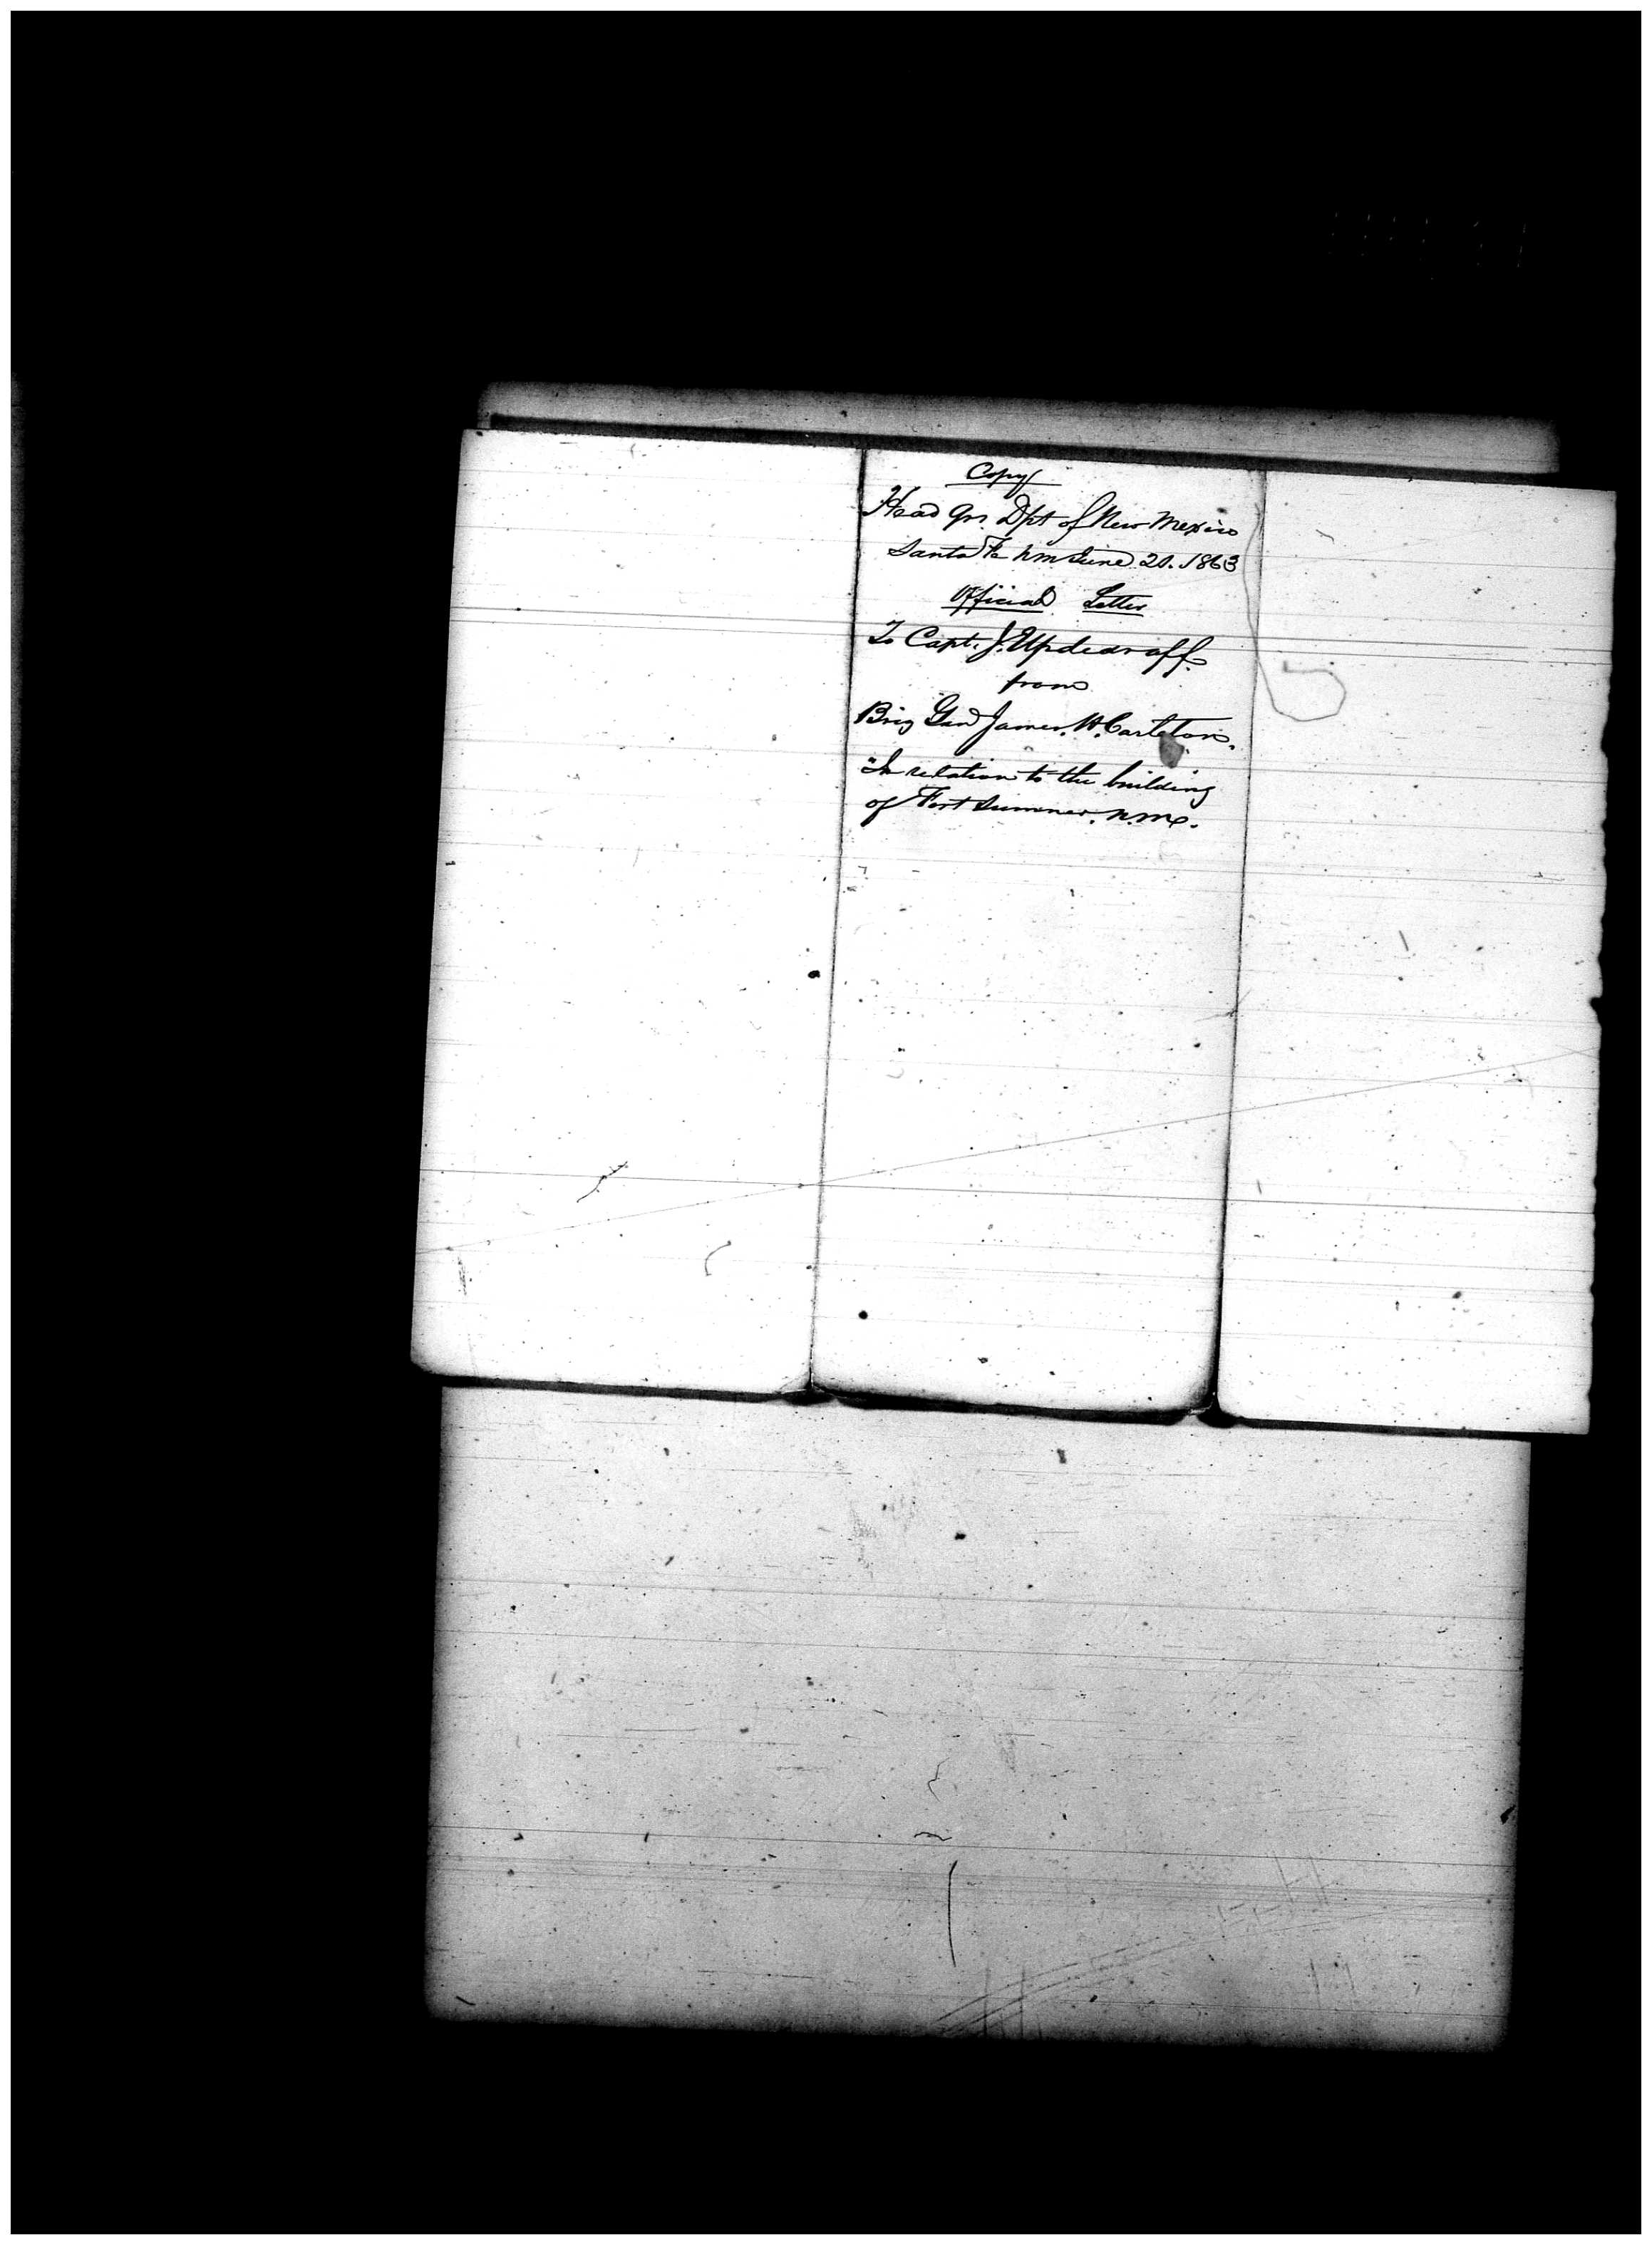 Copy
Head Qrs. Dpt of New Mexico
Santa Fe N M June 20. 1863
Official Letter
To Capt. J. Updegraff.
from
Brig Genl James. H. Carleton.
In relation to the building
of Fort Sumner. N. Mo.